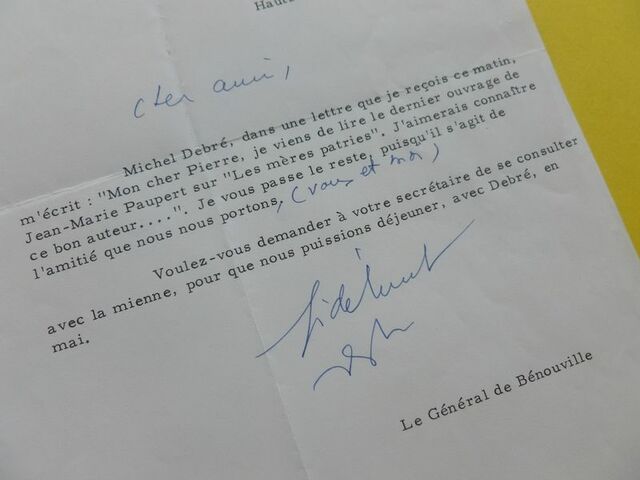 Haut
cher ami,
Michel Debré, dans une lettre que je reçois ce matin,
m'écrit : "Mon cher Pierre, je viens de lire le dernier ouvrage de
Jean-Marie Paupert sur "Les mères patries". J'aimerais connaître
ce bon auteur....". Je vous passe le reste, puisqu'il s'agit de
l'amitié que nous nous portons, (vous et moi)
Voulez-vous demander à votre secrétaire de se consulter
avec la mienne, pour que nous puissions déjeuner, avec Debré, en
mai.
fidèlement
Le Général de Bénouville